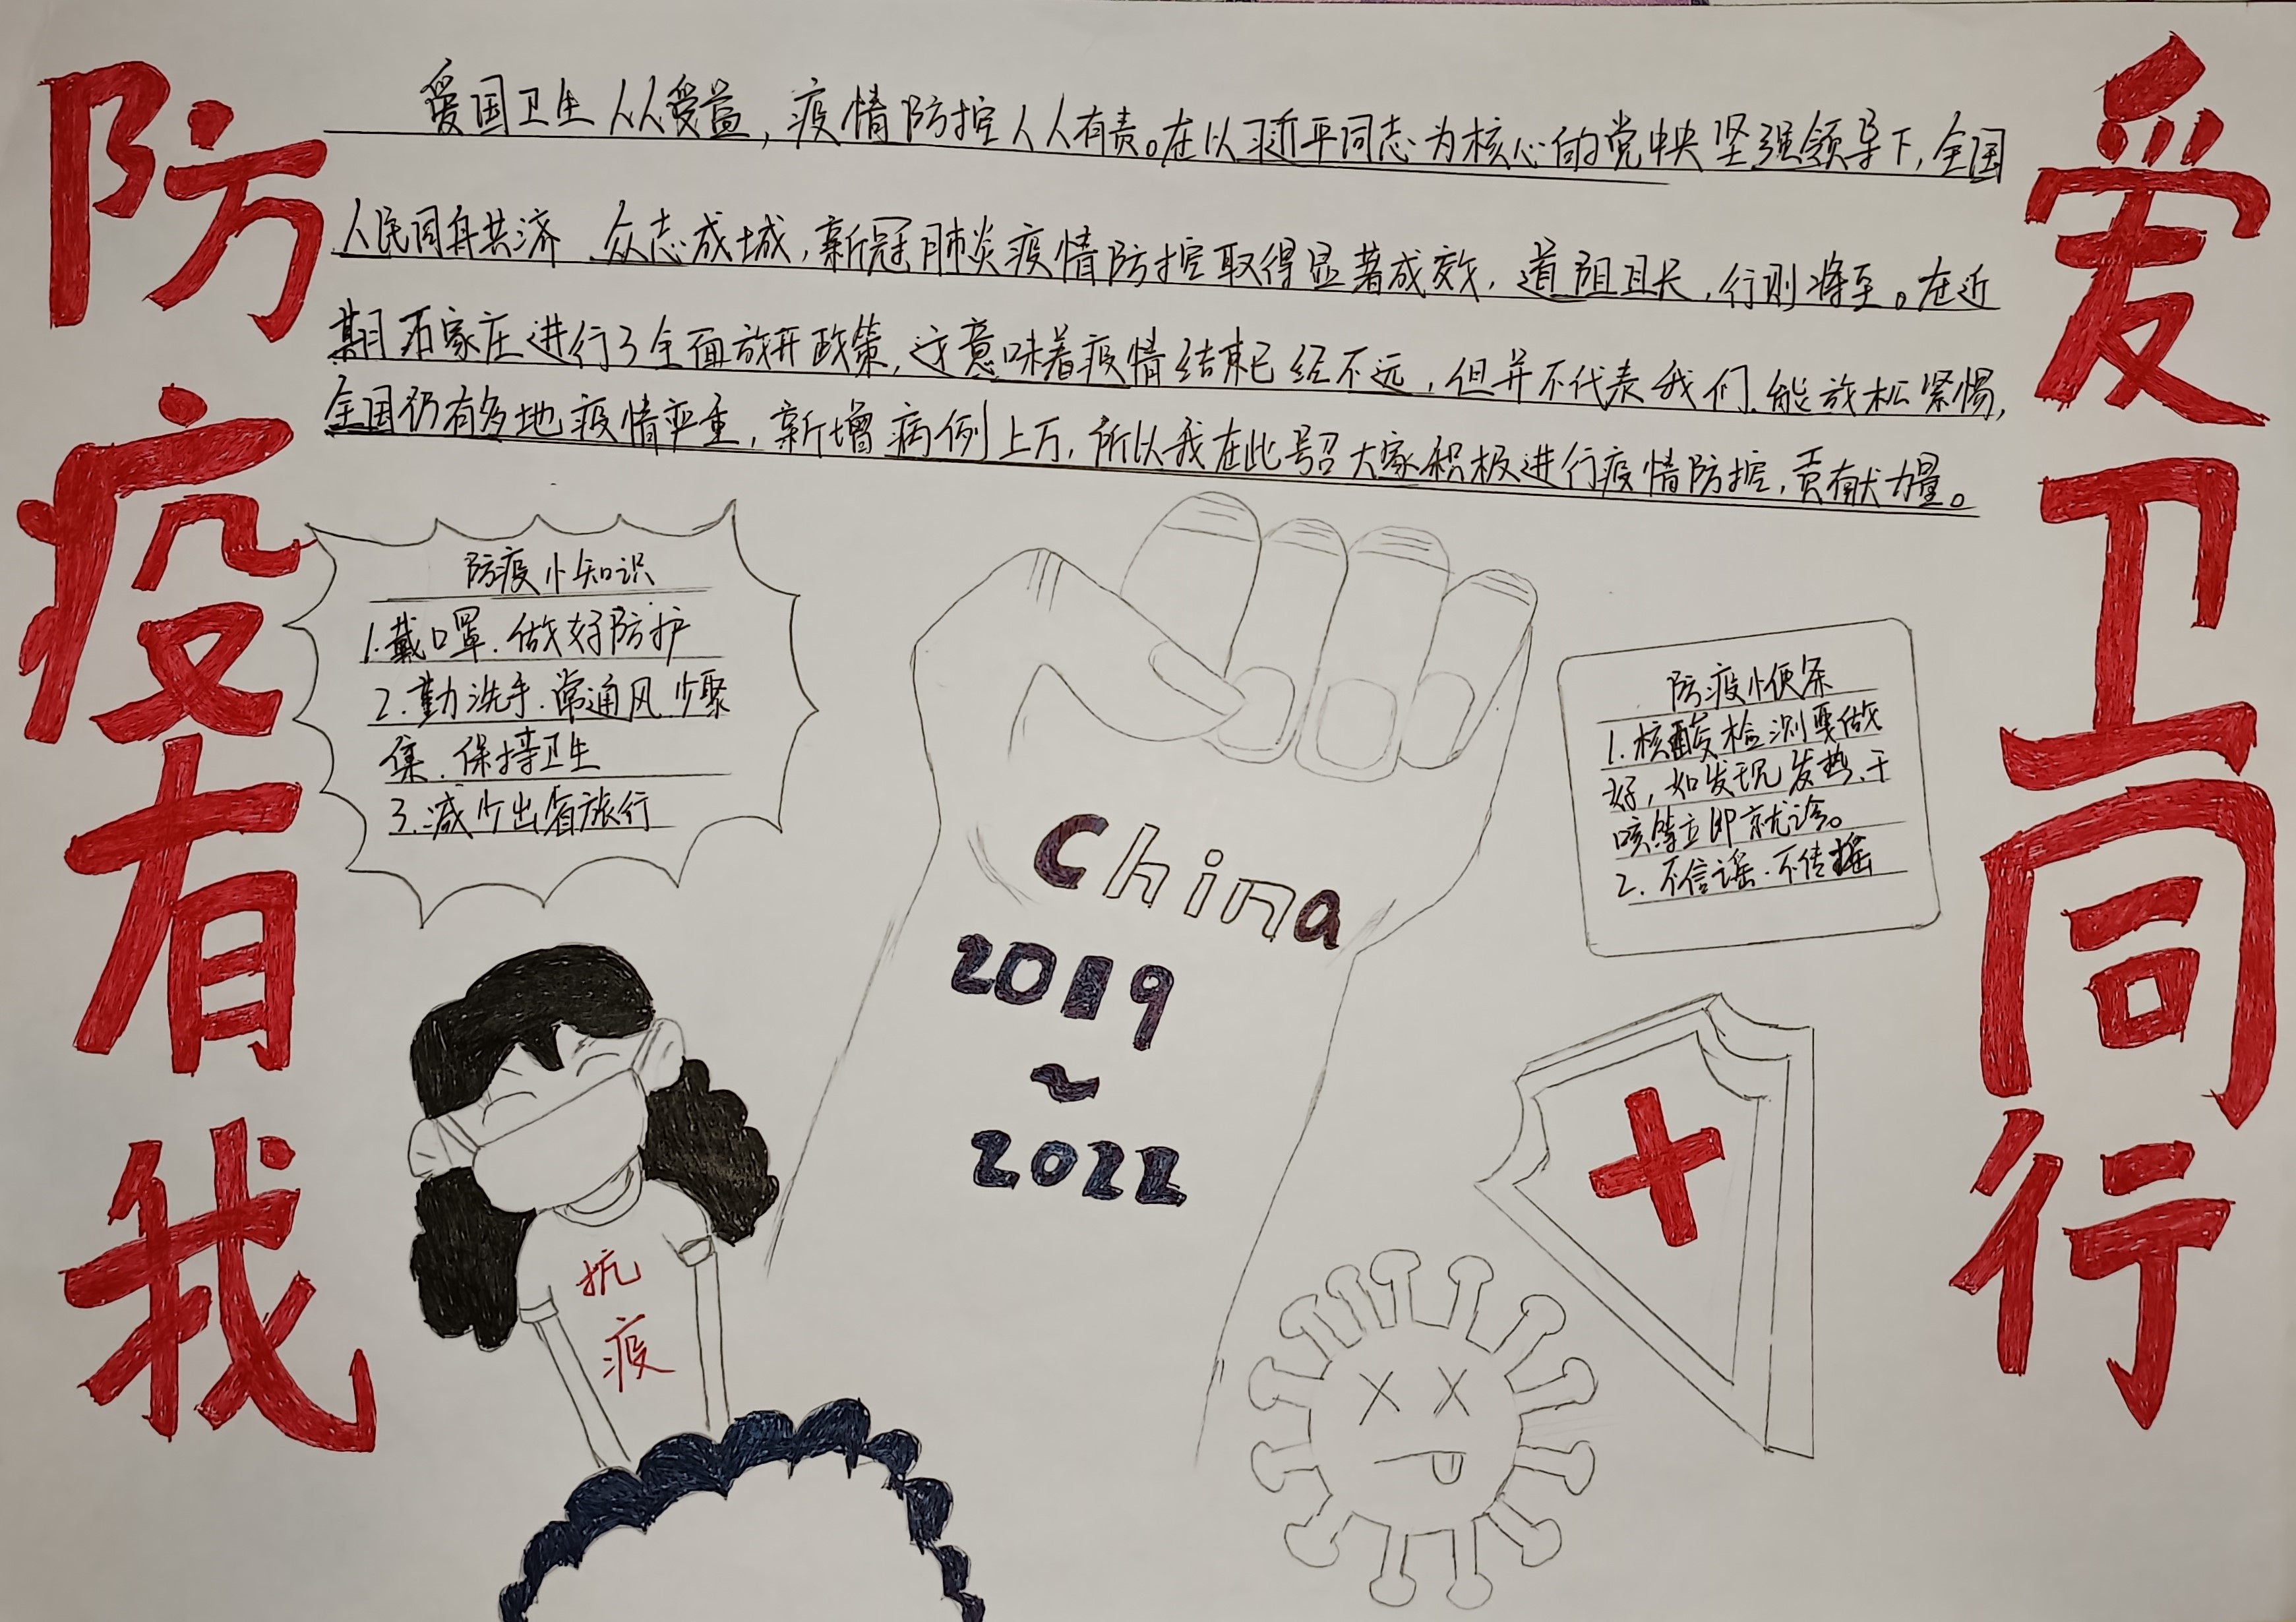 防疫有我
爱卫同行
爱国卫生人人受益，疫情防控人人有责。在以习近平同志为核心的党中央坚强领导下，全国
人民同舟共济、众志成城，新冠肺炎疫情防控取得显著成效，道阻且长，行则将至。在近
期石家庄进行了全面放开政策，这意味着疫情结束已经不远，但并不代表我们能放松紧惕，
全国仍有多地疫情严重，新增病例上万，所以我在此号召大家积极进行疫情防控，贡献力量。
防疫小知识
1.戴口罩.做好防护
2.勤洗手.常通风.少聚
集.保持卫生
3.减少出省旅行
防疫小便条
1.核酸检测要做
好，如发现发热、干
咳等立即就诊。
2.不信谣.不传谣
China
2019
~
2022
抗
疫